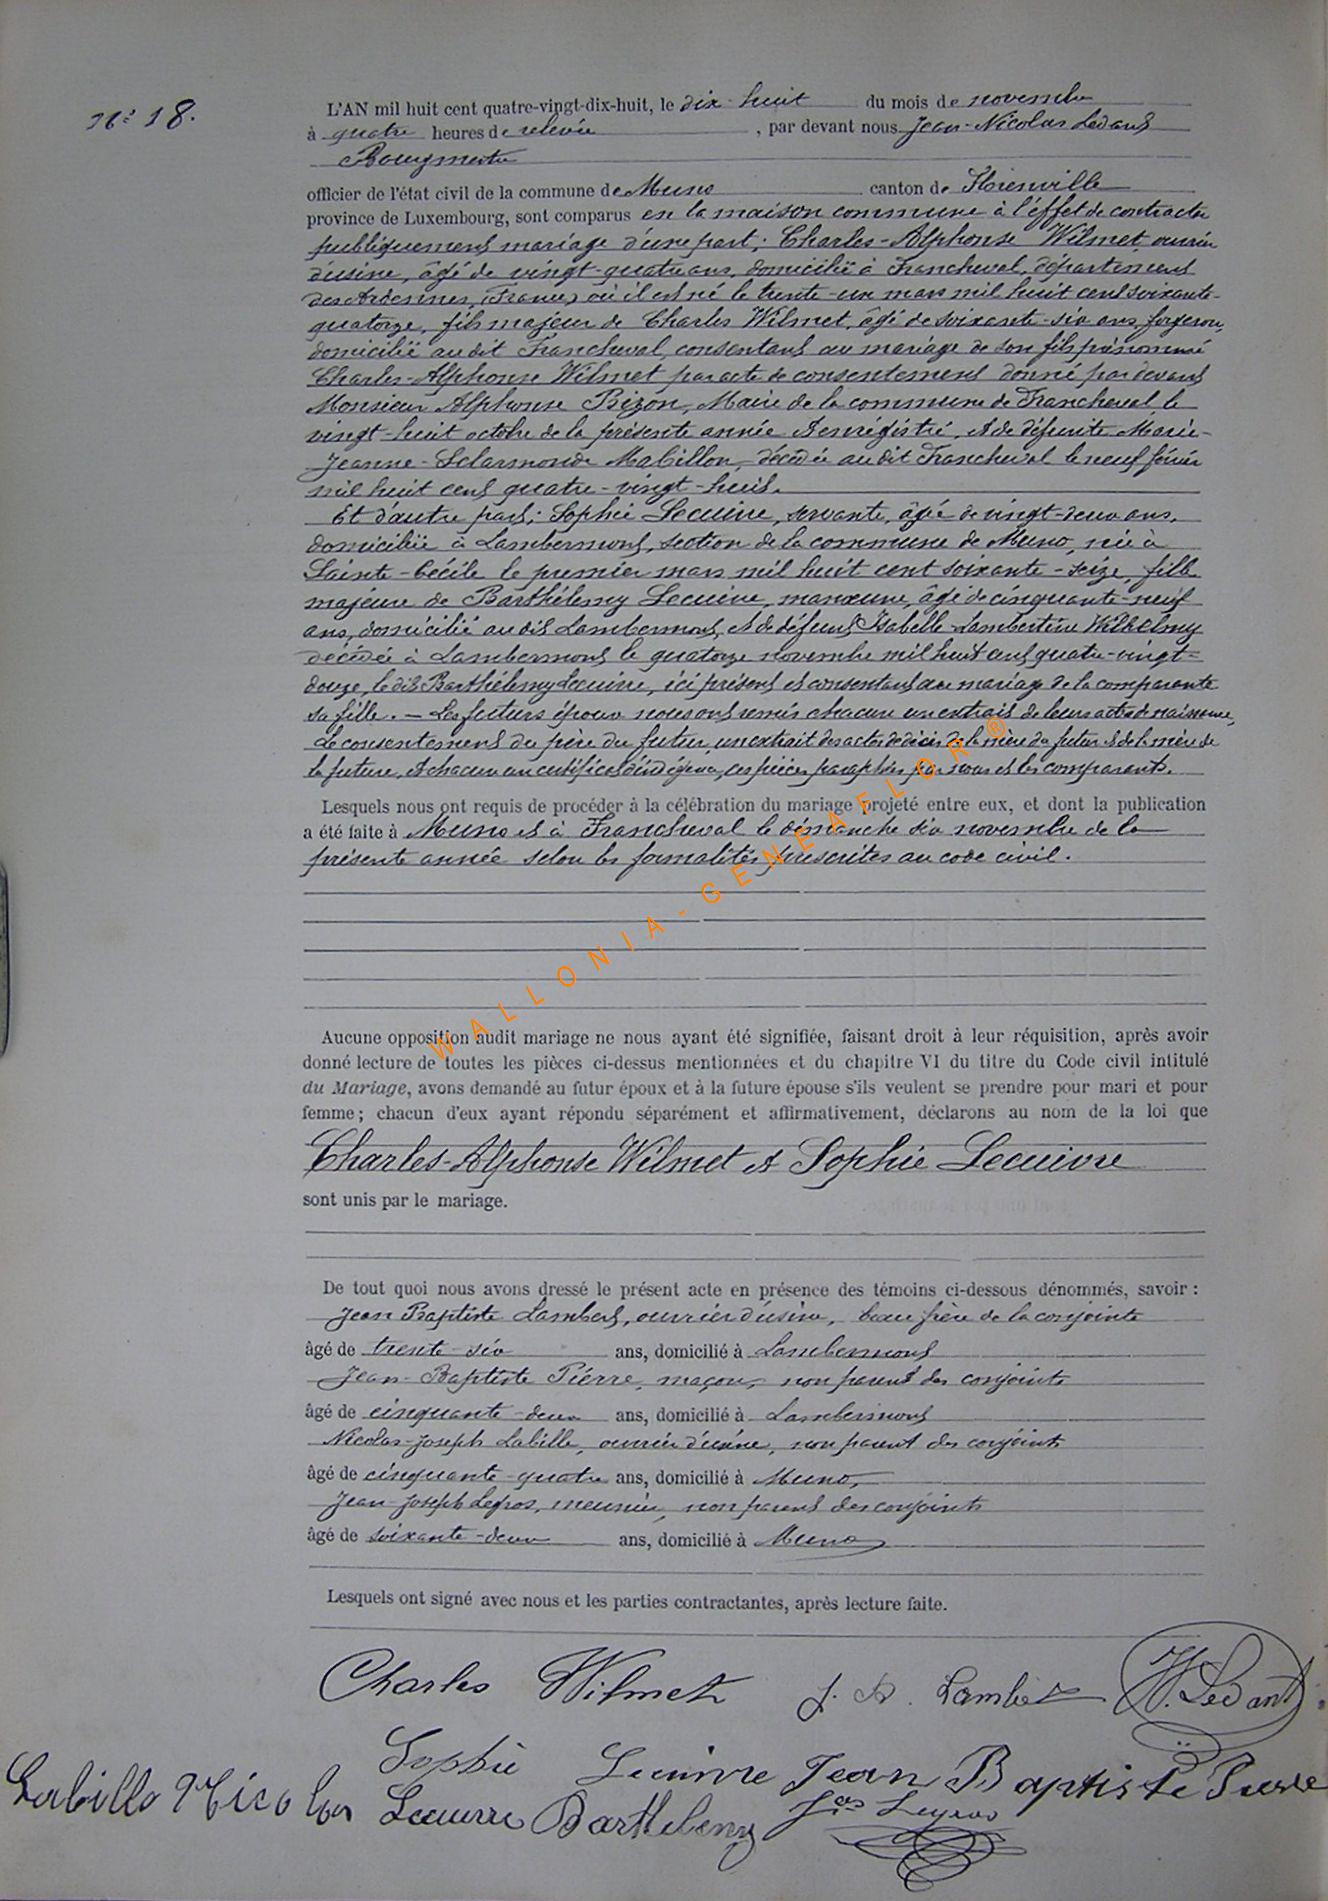 N° 18.
L'AN mil huit cent quatre-vingt-dix-huit, le dix-huit du mois de novembre
à quatre heures de relevée, par devant nous Jean-Nicolas Ledant
Bourgmestre
officier de l'état civil de la commune de Muno canton de Florenville
province de Luxembourg, sont comparus en la maison commune à l'effet de contracter
publiquement mariage d'une part; Charles-Alphonse Wilmet ouvrier
d'usine, âgé de vingt-quatre ans, domicilié à Francheval, département
des Ardennes, (France) où il est né le trente-un mars mil huit cent soixante-
quatorze, fils majeur de Charles Wilmet, âgé de soixante-six ans, forgeron,
domicilié au dit Francheval, consentant au mariage de son fils prénommé
Charles-Alphonse Wilmet par acte de consentement donné par devant
Monsieur Alphonse Bizon, Maire de la commune de Francheval le
vingt-huit octobre de la présente année et enrégistré, et de défunte Marie-
Jeanne-Sclarmonde Mabillon, décédée au dit Francheval le neuf février
mil huit cent quatre-vingt-huit.
Et d'autre part; Sophie Lecuivre, servante, âgée de vingt-deux ans,
domiciliée à Lambermont, section de la commune de Muno, née à
Sainte-Cécile le premier mars mil huit cent soixante-seize, fille
majeure de Barthélemy Lecuivre, manœuvre, âgé de cinquante-neuf
ans, domicilié au dit Lambermont, et de défunt Isabelle-Lambertine Wilhelmy
décédée à Lambermont le quatorze novembre mil huit cent quatre-vingt-
douze, le dit Barthélemy Lecuivre, ici présent et consentant au mariage de la comparante
sa fille. — Les futurs époux nous ont remis chacun un extrait de leurs actes de naissance,
le consentement du père du futur, un extrait des actes de décès de la mère du futur et de la mère de
la future, et chacun un certificat d'indigence, ces pièces paraphées par nous et les comparants.
Lesquels nous ont requis de procéder à la célébration du mariage projeté entre eux, et dont la publication
a été faite à Muno et à Francheval le dimanche six novembre de la
présente année selon les formalités prescrites au code civil.
WALLONIA-GENEAFLOR ®
Aucune opposition audit mariage ne nous ayant été signifiée, faisant droit à leur réquisition, après avoir
donné lecture de toutes les pièces ci-dessus mentionnées et du chapitre VI du titre du Code civil intitulé
du Mariage, avons demandé au futur époux et à la future épouse s'ils veulent se prendre pour mari et pour
femme; chacun d'eux ayant répondu séparément et affirmativement, déclarons au nom de la loi que
Charles-Alphonse Wilmet et Sophie Lecuivre
sont unis par le mariage.
De tout quoi nous avons dressé le présent acte en présence des témoins ci-dessous dénommés, savoir :
Jean Baptiste Lambert, ouvrier d'usine, beau frère de la conjointe
âgé de trente-six ans, domicilié à Lambermont
Jean-Baptiste Pierre, maçon, non parent des conjoints
âgé de cinquante-deux ans, domicilié à Lambermont
Nicolas-Joseph Labille, ouvrier d'usine, non parent des conjoints
âgé de cinquante-quatre ans, domicilié à Muno,
Jean-Joseph Legros, meunier, non parent des conjoints
âgé de soixante-deux ans, domicilié à Muno
Lesquels ont signé avec nous et les parties contractantes, après lecture faite.
Charles Wilmet J. B. Lambert N. Ledant
Sophie Lecuivre Jean Baptiste Pierre
Labille Nicolas Lecuivre Barthelemy Legros